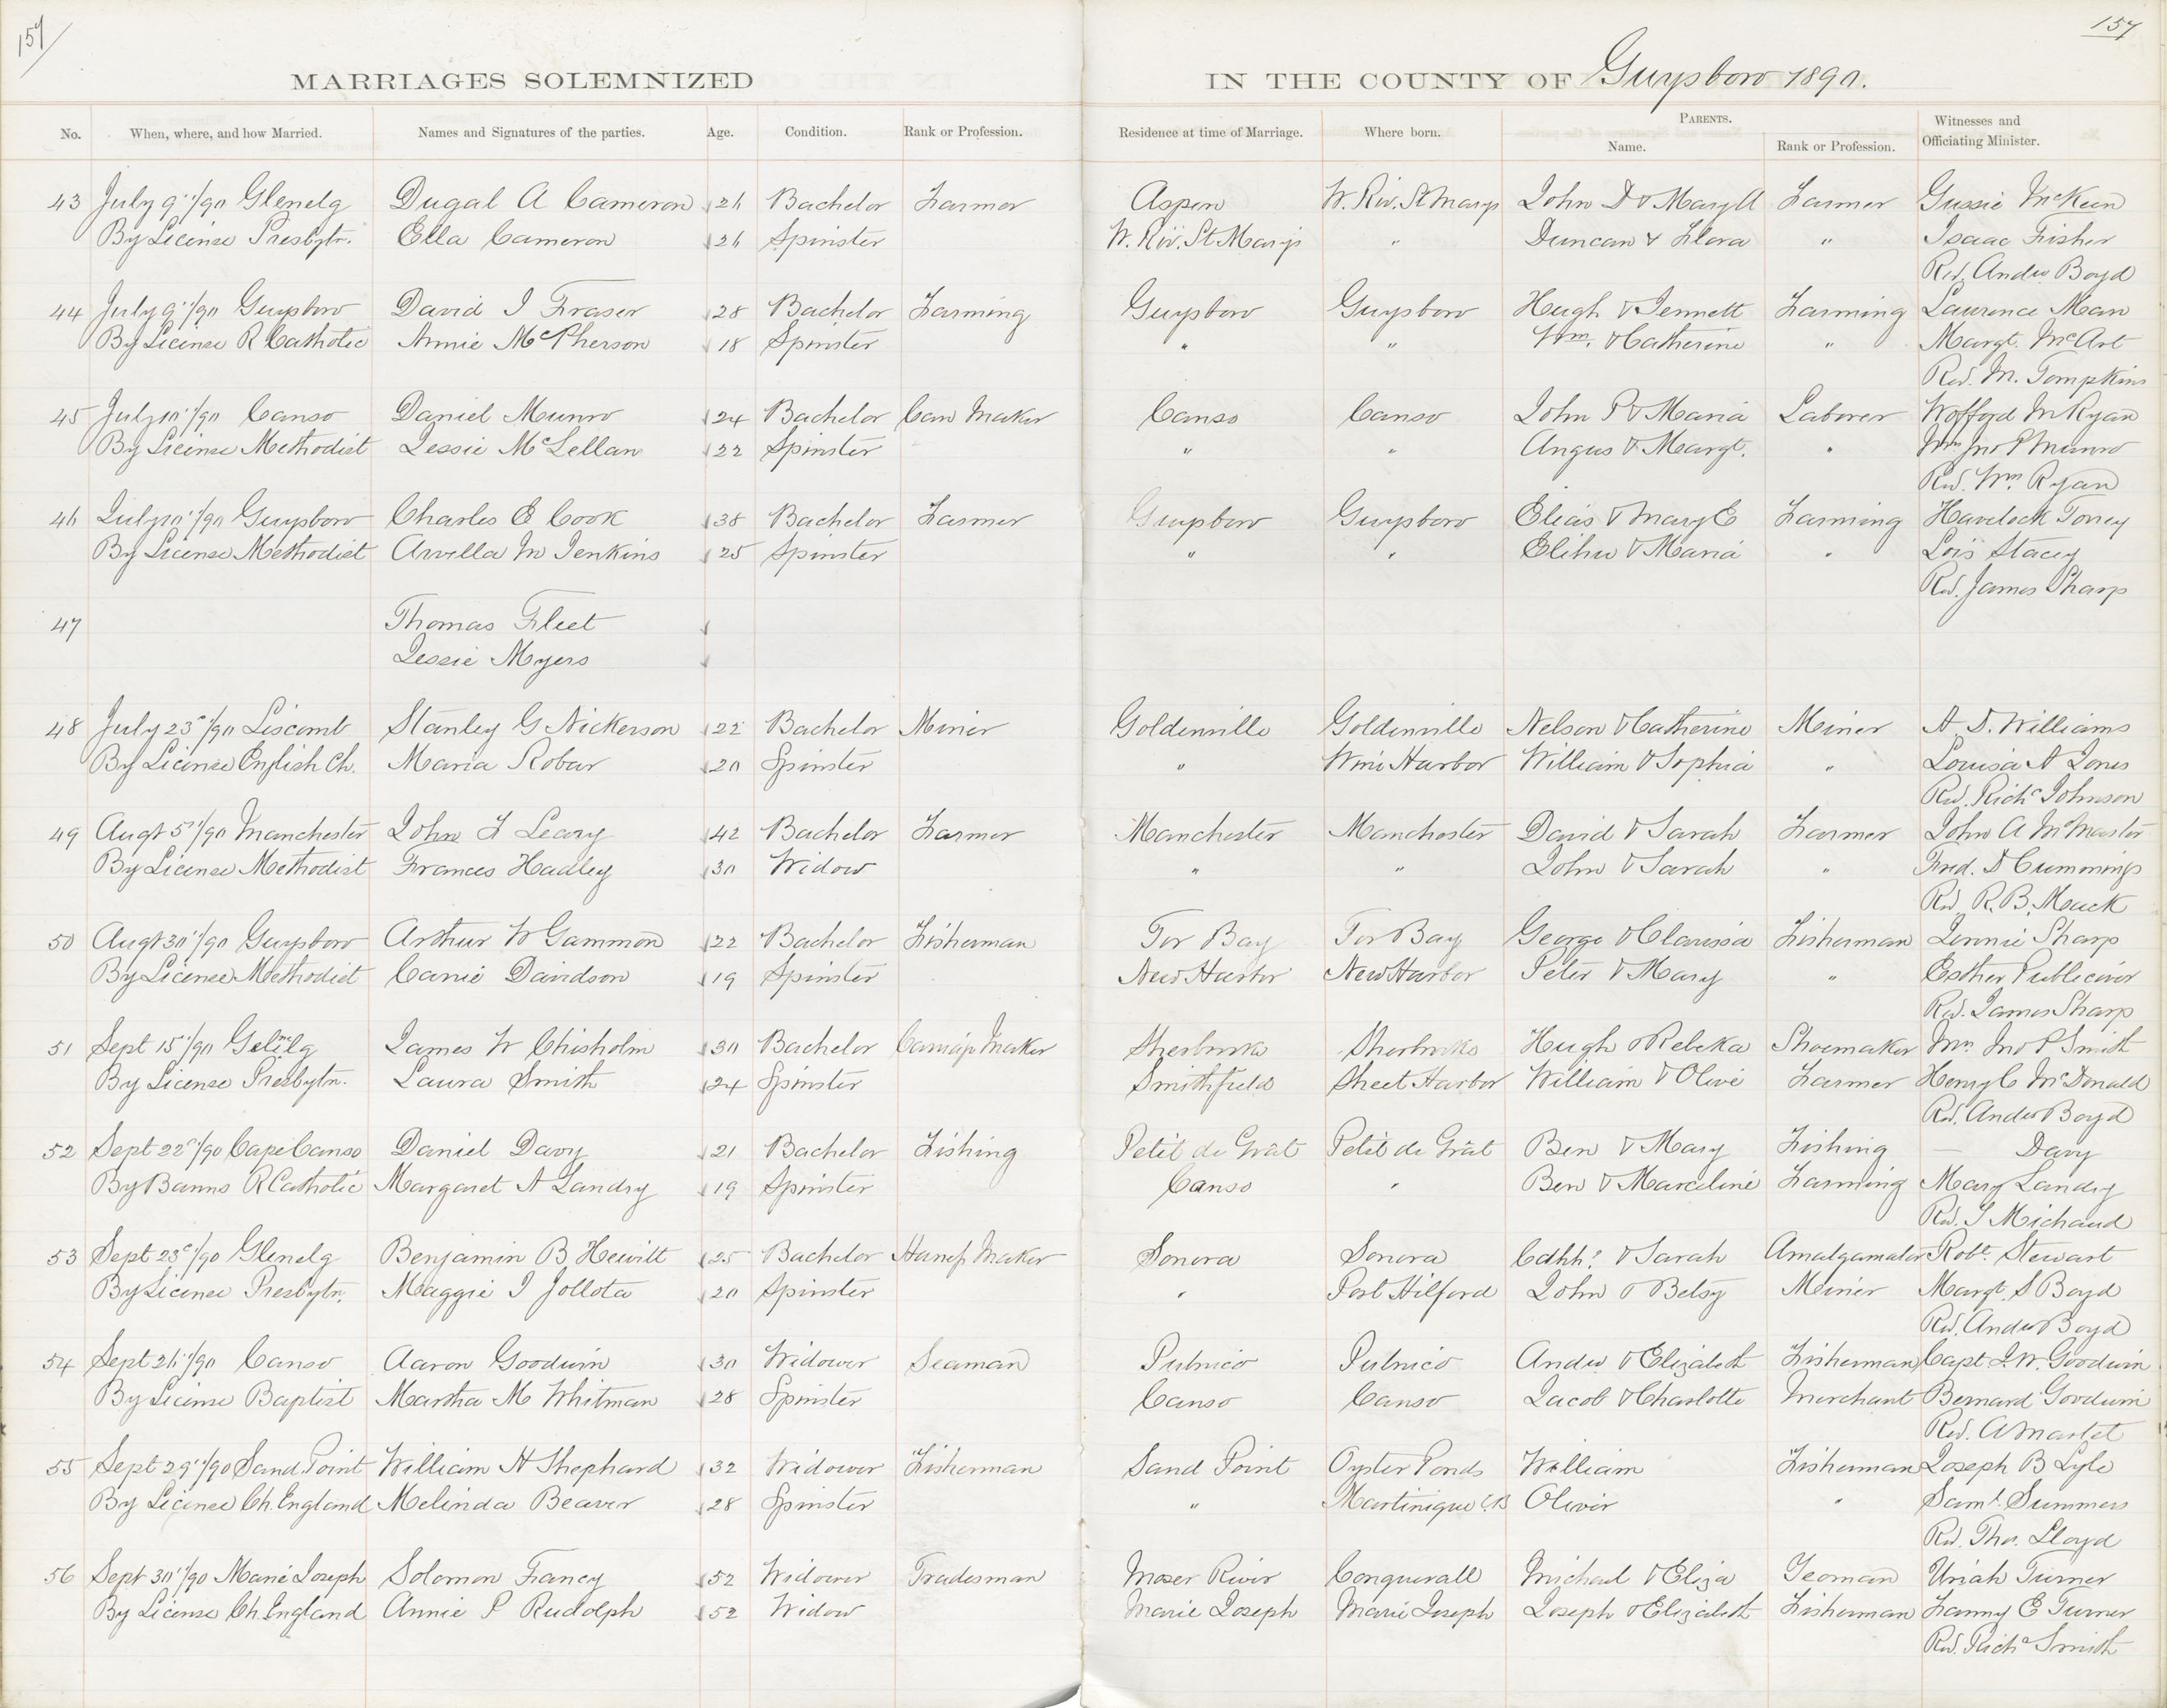 157
157
MARRIAGES SOLEMNIZED IN THE COUNTY OF Guysboro 1890.
No. When, where, and how Married. Names and Signatures of the parties. Age. Condition. Rank or Profession. Residence at time of Marriage. Where born. PARENTS. Witnesses and
Name. Rank or Profession. Officiating Minister.
43 July 9"/90 Glenelg Dugal A Cameron 26 Bachelor Farmer Aspen W. Riv. St Marys John D & Mary A Farmer Gussie McKeen
By License Presbytn. Ella Cameron 26 Spinster W. Riv. St Marys " Duncan & Flora " Isaac Fisher
Rev. Andw Boyd
44 July 9"/90 Guysboro David I Fraser 28 Bachelor Farming Guysboro Guysboro Hugh & Jennett Farming Laurence Man
By License R Catholic Annie McPherson 18 Spinster " " Wm. & Catherine " Margt. McArt
Rev. M. Tompkins
45 July 10"/90 Canso Daniel Munro 24 Bachelor Can Maker Canso Canso John P & Maria Laborer Wofford M Ryan
By License Methodist Jessie McLellan 22 Spinster " " Angus & Margt. " Mrs Jno P Munro
Rev. Wm. Ryan
46 July 10"/90 Guysboro Charles E Cook 38 Bachelor Farmer Guysboro Guysboro Elias & Mary E Farming Havelock Torrey
By License Methodist Arvella M Jenkins 25 Spinster " " Elihu & Maria " Lois Stacey
Rev. James Sharp
47 Thomas Fleet
Jessie Myers
48 July 23"/90 Liscomb Stanley G Nickerson 22 Bachelor Miner Goldenville Goldenville Nelson & Catherine Miner A. D. Williams
By License English Ch. Maria Robar 20 Spinster " Wine Harbor William & Sophia " Louisa A Jones
Rev. Richd Johnson
49 Augt 5"/90 Manchester John F Leary 42 Bachelor Farmer Manchester Manchester David & Sarah Farmer John A McMaster
By License Methodist Frances Hadley 30 Widow " " John & Sarah " Fred. D Cummings
Rev. R. B. Mack
50 Augt 30"/90 Guysboro Arthur W Gammon 22 Bachelor Fisherman Tor Bay Tor Bay George & Clarissa Fisherman Jennie Sharp
By License Methodist Canie Davidson 19 Spinster New Harbor New Harbor Peter & Mary " Esther Publicover
Rev. James Sharp
51 Sept 15"/90 James W Chisholm 30 Bachelor Carriage Maker Sherbrooke Sherbrooke Hugh & Rebeka Shoemaker Mrs Jno P Smith
By License Presbytn. Laura Smith 24 Spinster Smithfield Sheet Harbor William & Olive Farmer Henry C McDonald
Rev. Andw Boyd
52 Sept 22"/90 Cape Canso Daniel Davy 21 Bachelor Fishing Petit de Grât Petit de Grât Ben & Mary Fishing — Davy
By Banns R Catholic Margaret A Landry 19 Spinster Canso " Ben & Marceline Farming Mary Landry
Rev. J Michaud
53 Sept 23"/90 Glenelg Benjamin B Hewitt 25 Bachelor Harness Maker Sonora Sonora & Sarah Amalgamator Robt. Stewart
By License Presbytn. Maggie I Jollota 20 Spinster " Port Hilford John & Betsy Miner Margt. S Boyd
Rev. Andw Boyd
54 Sept 26"/90 Canso Aaron Goodwin 30 Widower Seaman Pubnico Pubnico Andw & Elizabeth Fisherman Capt J. W. Goodwin
By License Baptist Martha M Whitman 28 Spinster Canso Canso Jacob & Charlotte Merchant Bernard Goodwin
Rev. A Martel
55 Sept 29"/90 Sand Point William H Shephard 32 Widower Fisherman Sand Point Oyster Ponds William Fisherman Joseph B Lyle
By License Ch. England Melinda Beaver 28 Spinster " Martinique C.B Oliver " Saml. Summers
Rev. Thos. Lloyd
56 Sept 30"/90 Marie Joseph Solomon Francy 52 Widower Tradesman Moser River Conquerall Michael & Eliza Yeoman Uriah Turner
By License Ch. England Annie P Rudolph 52 Widow Marie Joseph Marie Joseph Joseph & Elizabeth Fisherman Fanny E Turner
Rev. Richd Smith